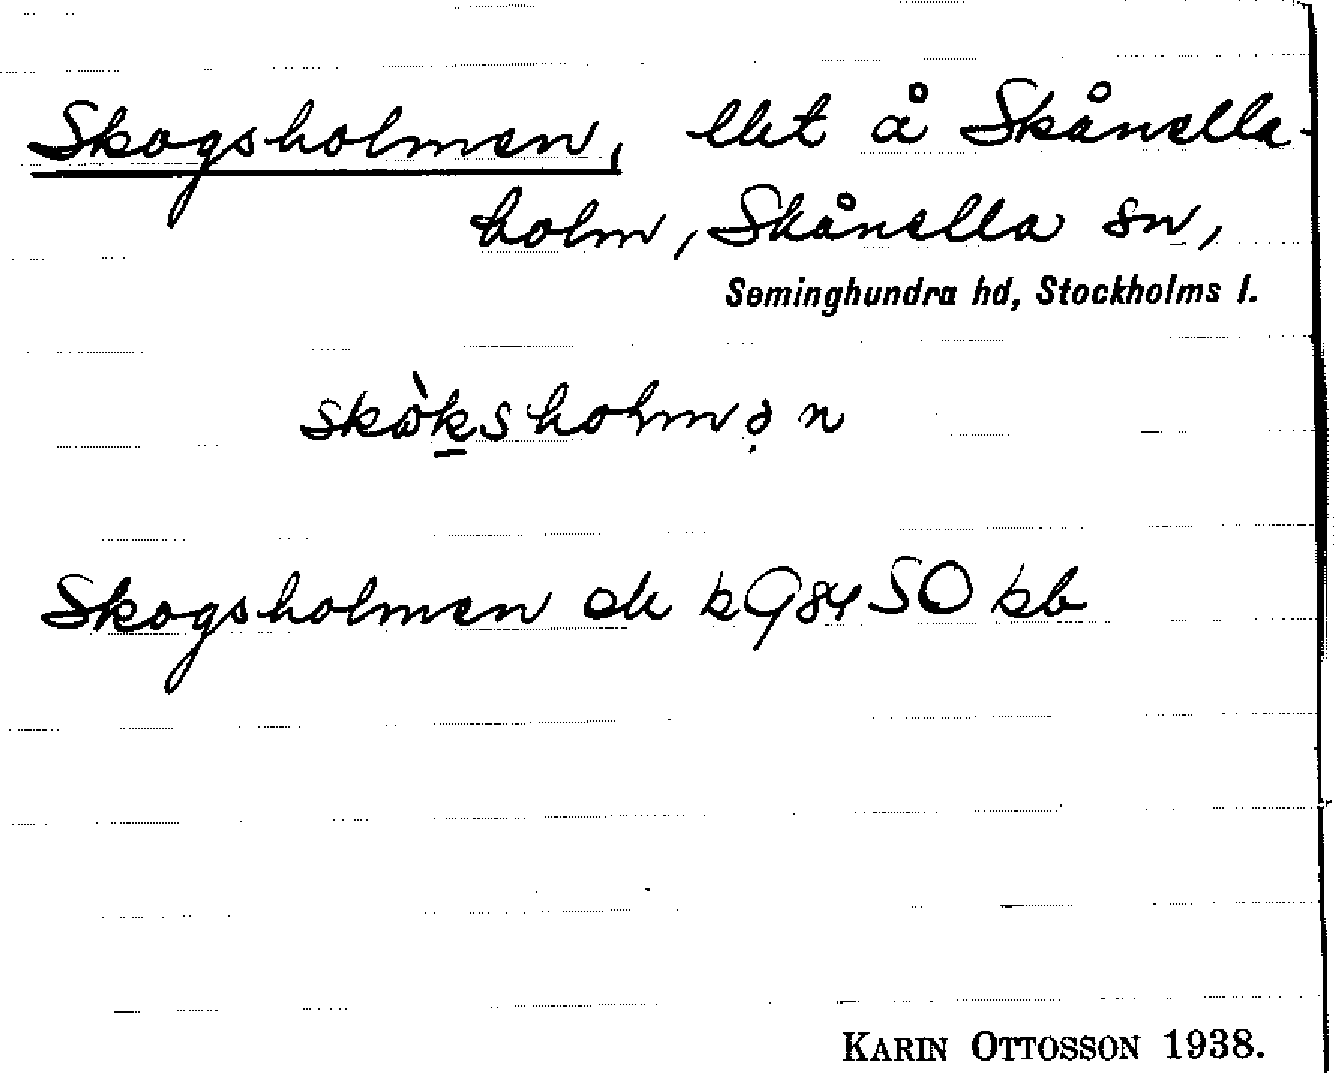 Skogsholmen, lht å Skånella-
holm, Skånella sn,
Seminghundra hd, Stockholms l.
skòksholmən
Skogsholmen ek
KARIN OTTOSSON 1938.